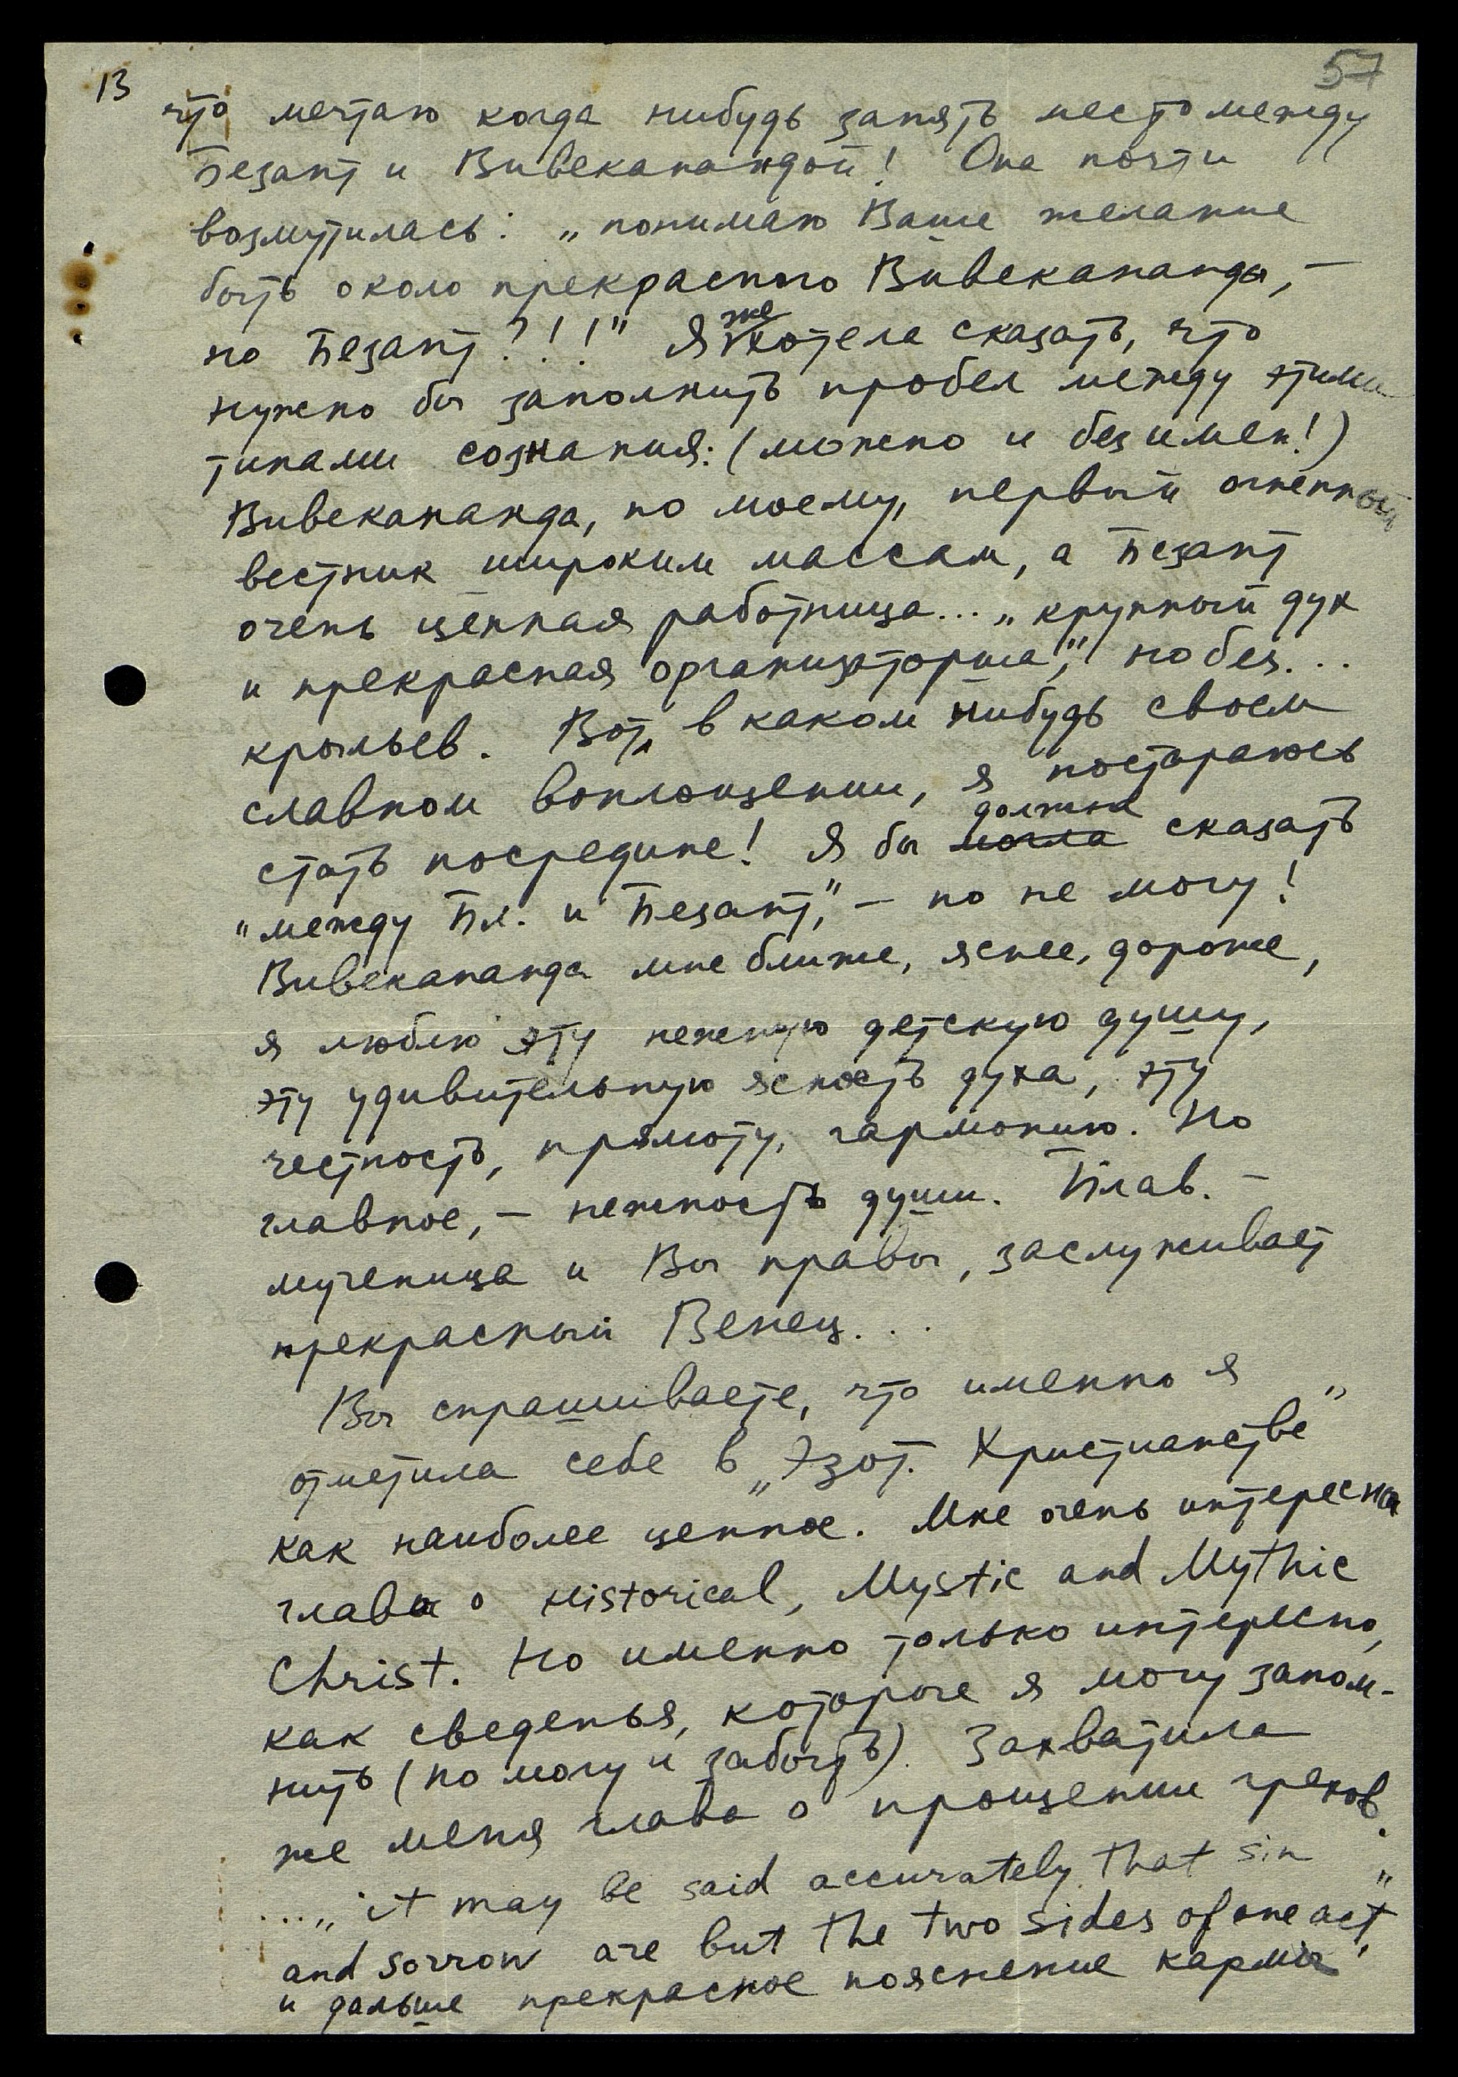 13
57
что мечтаю когда нибудь занять место между
Безант и Вивеканандой! Она почти
возмутилась: „понимаю Ваше желание
быть около прекрасного Вивекананды, —
но Безант?!!!" Я же хотела сказать, что
нужно бы заполнить пробел между этими
типами сознания: (можно и без имен!)
Вивекананда, по моему, первый огненный
вестник широким массам, а Безант
очень ценная работница... „крупный дух
и прекрасная организаторша", но без...
крыльев. Вот, в каком нибудь своем
славном воплощении, я постараюсь
стать посредине! Я бы могла должна сказать
"между Бл. и Безант", — но не могу!
Вивекананда мне ближе, яснее, дороже,
я люблю эту нежную детскую душу,
эту удивительную ясность духа, эту
честность, прямоту, гармонию. Но
главное, — нежность души. Блав. —
мученица и Вы правы, заслуживает
прекрасный Венец...
Вы спрашиваете, что именно я
отметила себе в „Эзот. Христианстве"
как наиболее ценное. Мне очень интересна
глава о Historical, Mystic and Mythic
Christ. Но именно только интересно,
как сведенья, которые я могу запом-
нить (но могу и забыть). Захватила
же меня глава о прощении грехов.
...„it may be said accurately that sin
and sorrow are but the two sides of one act,"
и дальше прекрасное пояснение кармы